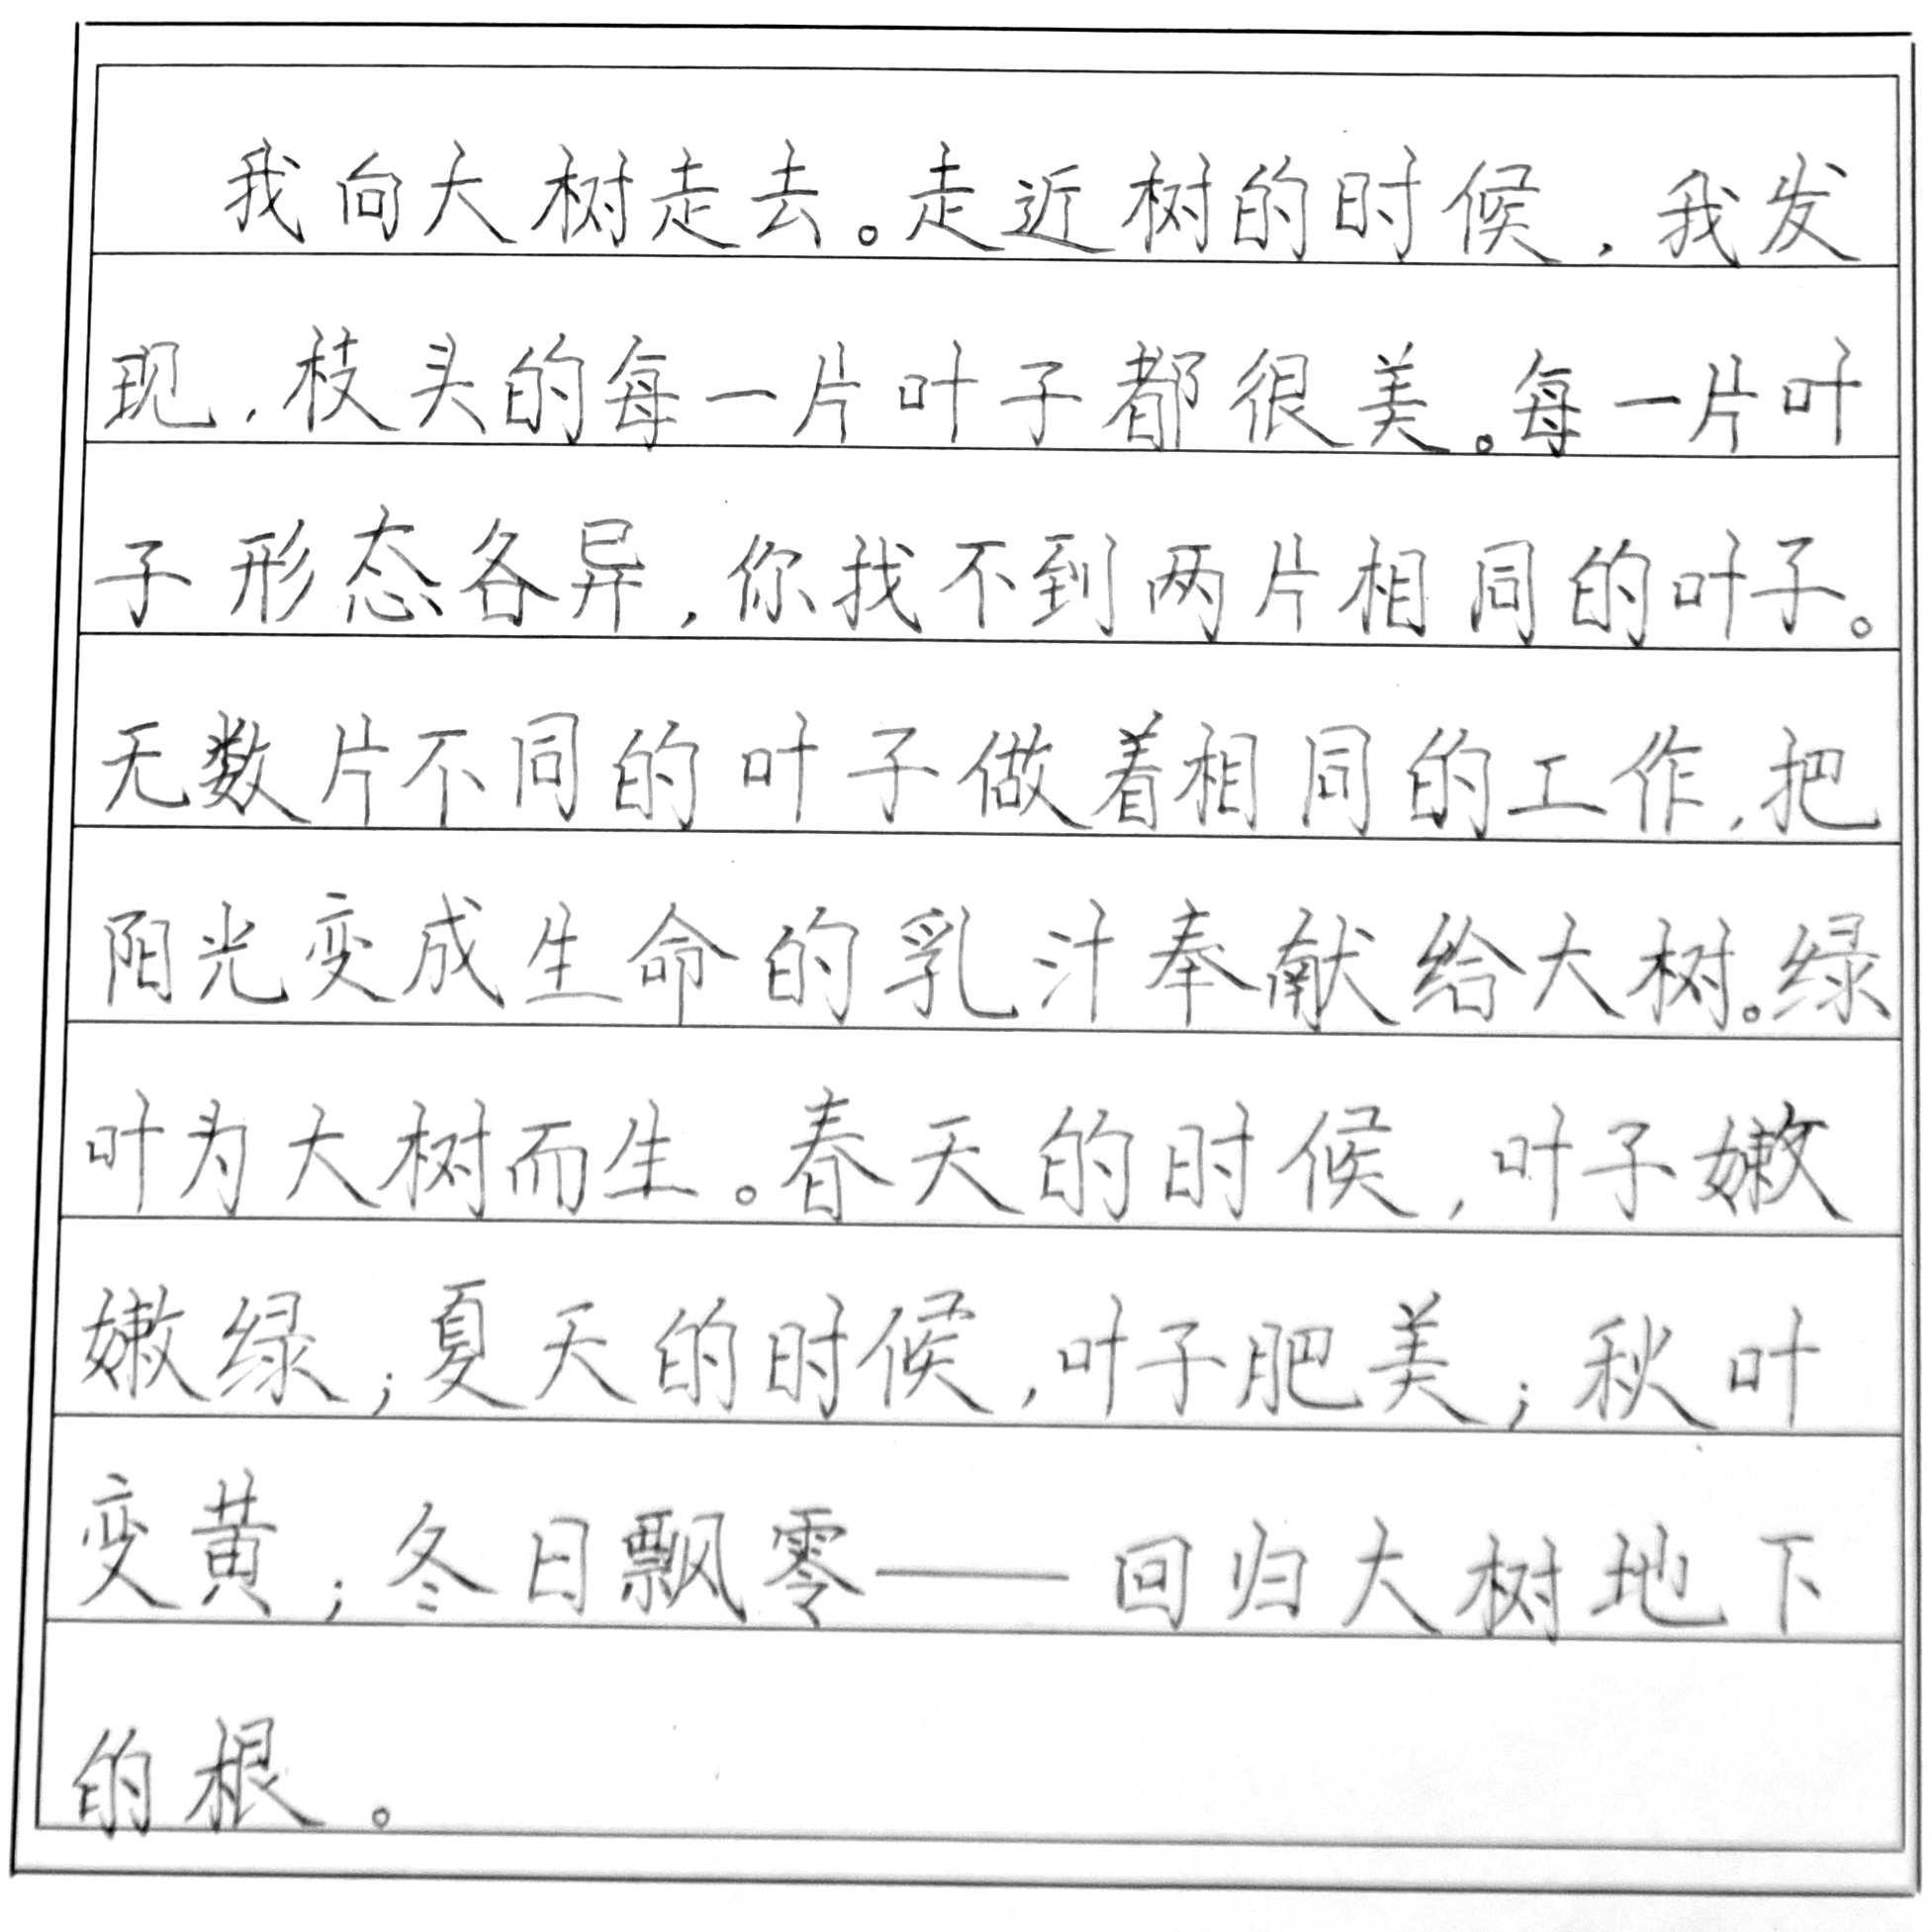 我向大树走去。走近树的时候，我发
现，枝头的每一片叶子都很美。每一片叶
子形态各异，你找不到两片相同的叶子。
无数片不同的叶子做着相同的工作，把
阳光变成生命的乳汁奉献给大树。绿
叶为大树而生。春天的时候，叶子嫩
嫩绿；夏天的时候，叶子肥美；秋叶
变黄；冬日飘零——回归大树地下
的根。